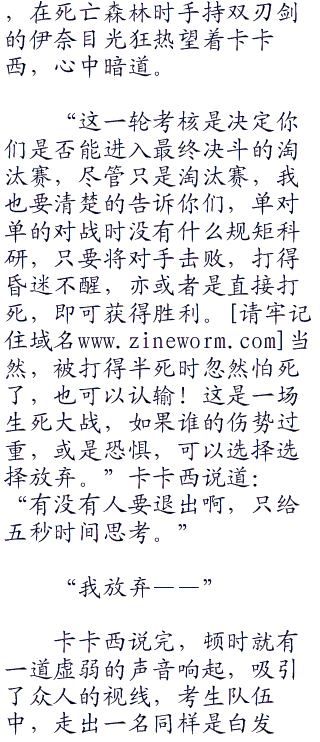 ，在死亡森林时手持双刃剑
的伊奈目光狂热望着卡卡
西，心中暗道。
“这一轮考核是决定你
们是否能进入最终决斗的淘
汰赛，尽管只是淘汰赛，我
也要清楚的告诉你们，单对
单的对战时没有什么规矩科
研，只要将对手击败，打得
昏迷不醒，亦或者是直接打
死，即可获得胜利。[请牢记
住域名www.zineworm.com]当
然，被打得半死时忽然怕死
了，也可以认输！这是一场
生死大战，如果谁的伤势过
重，或是恐惧，可以选择选
择放弃。”卡卡西说道：
“有没有人要退出啊，只给
五秒时间思考。”
“我放弃——”
卡卡西说完，顿时就有
一道虚弱的声音响起，吸引
了众人的视线，考生队伍
中，走出一名同样是白发